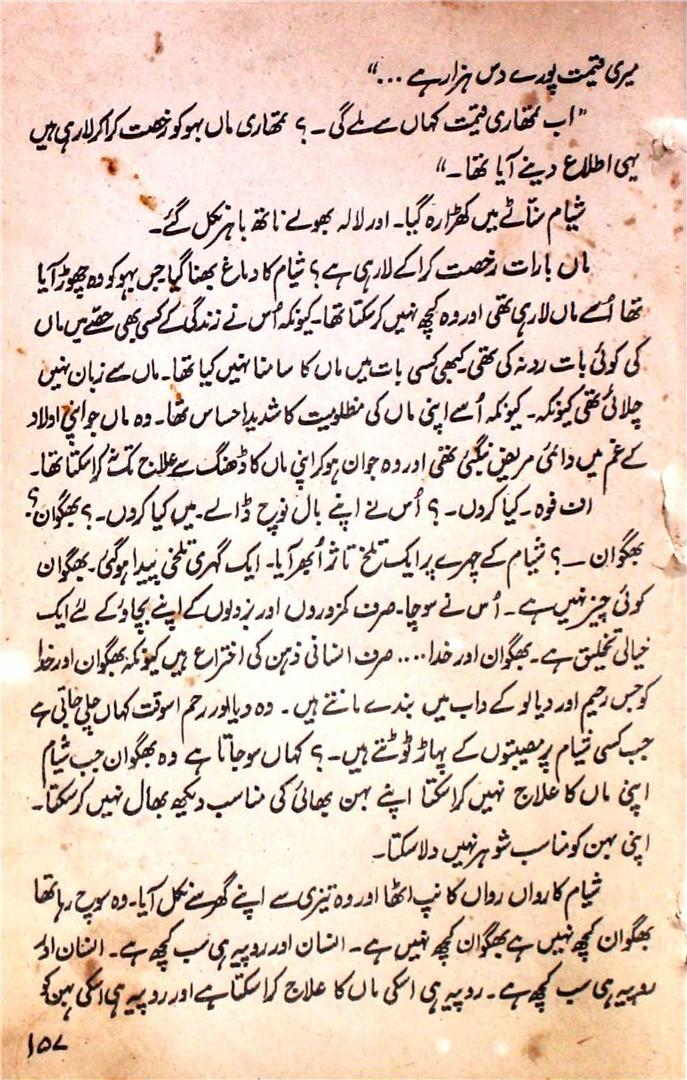 میری قیمت پورے دس ہزار ہے ...“
”اب تمھاری قیمت کہاں سے ملے گی ۔ ؟ تمھاری ماں بہو کو رخصت کرا کر لا رہی ہیں
یہی اطلاع دینے آیا تھا۔“
شیام سناٹے میں کھڑا رہ گیا۔ اور لالہ بھولے ناتھ باہر نکل گئے۔
ماں بارات رخصت کرا کے لا رہی ہے؟ شیام کا دماغ بھنا گیا جس بہو کو وہ چھوڑ آیا
تھا اُسے ماں لا رہی تھی اور وہ کچھ نہیں کر سکتا تھا۔ کیونکہ اُس نے زندگی کے کسی بھی حصّے میں ماں
کی کوئی بات رد نہ کی تھی۔ کبھی کسی بات میں ماں کا سامنا نہیں کیا تھا۔ ماں سے زبان نہیں
چلائی تھی کیونکہ۔ کیونکہ اُسے اپنی ماں کی مظلومیت کا شدید احساس تھا۔ وہ ماں جو اپنی اولاد
کے غم میں دائمی مریض بن گئی تھی اور وہ جوان ہو کر اپنی ماں کا ڈھنگ سے علاج تک نہ کرا سکتا تھا۔
اف فوہ۔ کیا کروں۔ ؟ اُس نے اپنے بال نوچ ڈالے۔ میں کیا کروں۔ ؟ بھگوان؟
بھگوان ۔ ؟ شیام کے چہرے پر ایک تلخ تاثر اُبھر آیا۔ ایک گہری تلخی پیدا ہو گئی۔ بھگوان
کوئی چیز نہیں ہے۔ اُس نے سوچا۔ صرف کمزوروں اور بزدلوں کے اپنے بچاؤ کے لئے ایک
خیالی تخلیق ہے۔ بھگوان اور خدا.... صرف انسانی ذہن کی اختراع ہیں کیونکہ بھگوان اور خدا
کو جس رحیم اور دیالو کے داب میں بندے مانتے ہیں ۔ وہ دیا اور رحم اسوقت کہاں چلی جاتی ہے
جب کسی شیام پر مصیبتوں کے پہاڑ ٹوٹتے ہیں۔ ؟ کہاں سو جاتا ہے وہ بھگوان جب شیام
اپنی ماں کا علاج نہیں کرا سکتا اپنے بہن بھائی کی مناسب دیکھ بھال نہیں کر سکتا۔
اپنی بہن کو مناسب شوہر نہیں دلا سکتا۔
شیام کا رواں رواں کانپ اٹھا اور وہ تیزی سے اپنے گھر سے نکل آیا۔ وہ سوچ رہا تھا
بھگوان کچھ نہیں ہے بھگوان کچھ نہیں ہے۔ انسان اور روپیہ ہی سب کچھ ہے۔ انسان اور
روپیہ ہی سب کچھ ہے۔ روپیہ ہی اسکی ماں کا علاج کرا سکتا ہے اور روپیہ ہی اسکی بہن کو
۱۵۷